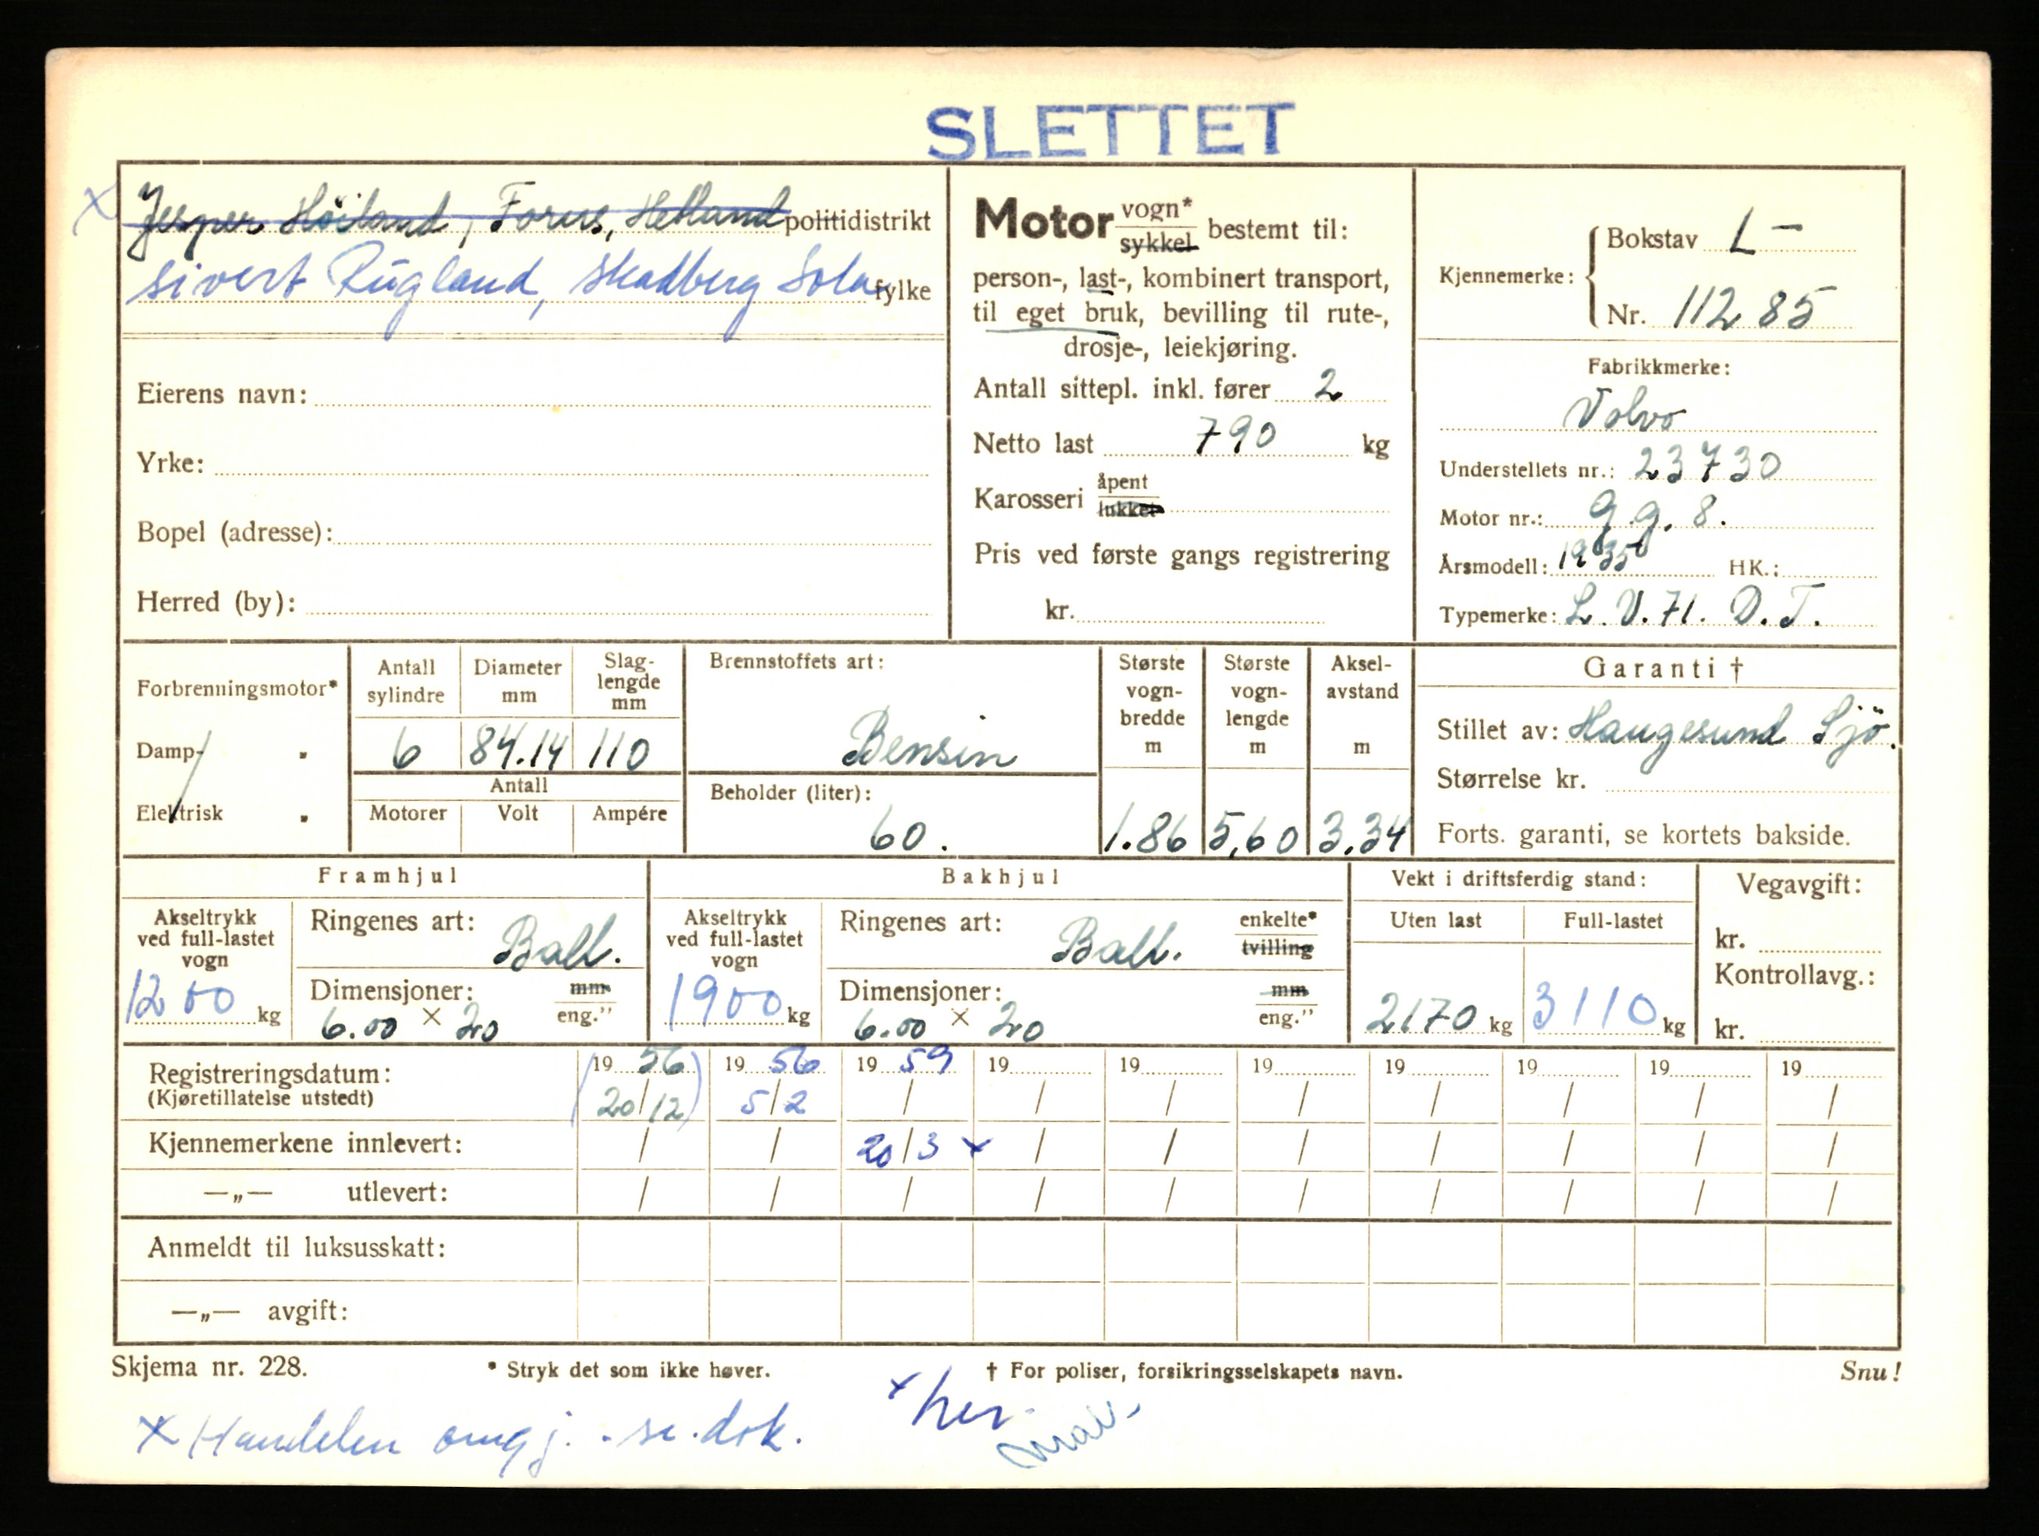 SLETTET
x Jesper Höiland, Forus, Hetland politidistrikt
sivert Rugland, Skadberg Sola fylke
Eierens navn:
Yrke:
Bopel (adresse):
Herred (by):
Motor vogn* sykkel bestemt til:
person-, last-, kombinert transport,
til eget bruk, bevilling til rute-,
drosje-, leiekjøring.
Antall sittepl. inkl. fører 2
Netto last 790 kg
Karosseri åpent lukket
Pris ved første gangs registrering
kr.
Kjennemerke: Bokstav L-
Nr. 11285
Fabrikkmerke:
Volvo
Understellets nr.: 23730
Motor nr.: 9.9.8.
Årsmodell: 1935 HK.:
Typemerke: L.V.71. D.T.
Forbrenningsmotor*
Damp- "
Elektrisk "
Antall sylindre 6
Diameter mm 84.14
Slag-lengde mm 110
Antall
Motorer Volt Ampére
Brennstoffets art:
Bensin
Beholder (liter):
60.
Største vogn-bredde m 1.86
Største vogn-lengde m 5,60
Aksel-avstand m 3.34
Garanti †
Stillet av: Haugesund Sjö.
Størrelse kr.
Forts. garanti, se kortets bakside.
Framhjul
Akseltrykk ved full-lastet vogn
1200 kg
Ringenes art: Ball.
Dimensjoner: mm eng."
6.00 x 20
Bakhjul
Akseltrykk ved full-lastet vogn
1900 kg
Ringenes art: Ball. enkelte* tvilling
Dimensjoner: mm eng."
6.00 x 20
Vekt i driftsferdig stand:
Uten last Full-lastet
2170 kg 3110 kg
Vegavgift:
kr.
Kontrollavg.:
kr.
Registreringsdatum: (19 56 19 56 19 59 19 19 19 19 19 19 19
(Kjøretillatelse utstedt) 20/12) 5/2 / / / / / / / /
Kjennemerkene innlevert: / / 20/3 x / / / / / / /
—„— utlevert: / / / / / / / / / /
Anmeldt til luksusskatt:
—„— avgift:
Skjema nr. 228. * Stryk det som ikke høver. † For poliser, forsikringsselskapets navn. Snu!
x Handelen omgj. - se. dok.
x her.